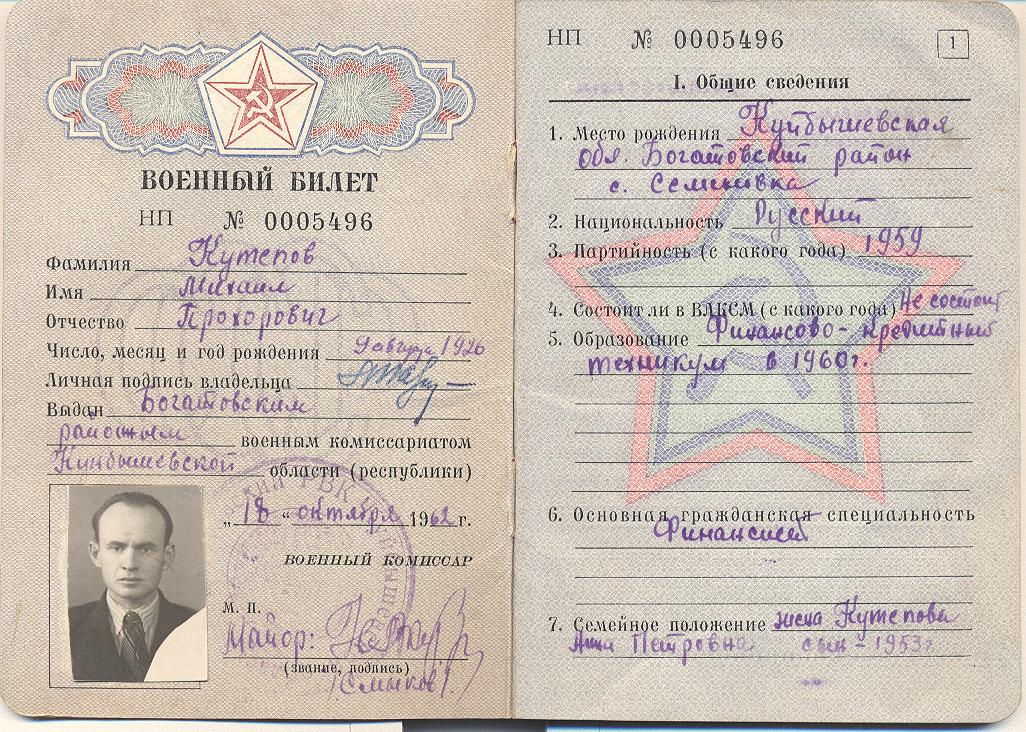 ВОЕННЫЙ БИЛЕТ
НП № 0005496
Фамилия Кутепов
Имя Михаил
Отчество Прохорович
Число, месяц и год рождения 9 августа 1926
Личная подпись владельца
Выдан Богатовским
районным военным комиссариатом
Куйбышевской области (республики)
„18“ октября 1962 г.
ВОЕННЫЙ КОМИССАР
М. П.
Майор:
(звание, подпись)
НП № 0005496
1
I. Общие сведения
1. Место рождения Куйбышевская
обл. Богатовский район
с.
2. Национальность Русский
3. Партийность (с какого года) 1959
4. Состоит ли в ВЛКСМ (с какого года) Не состоит
5. Образование Финансово-кредитный
техникум в 1960 г.
6. Основная гражданская специальность
Финансист
7. Семейное положение жена Кутепова
Анна Петровна сын - 1953 г